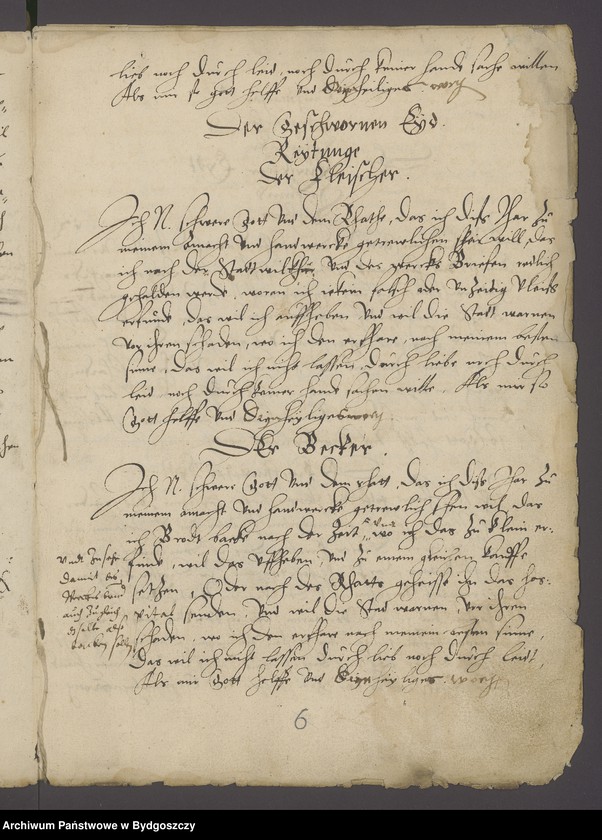 lieb noch durch leid, noch durch keiner hande sache willen
Als mir so gott helffe und Sein heiliges wort
Der Geschwornen Eyd.
Reytunge
der Fleischer.
Ich N. schwere Gott und dem Rathe, das ich diss Jhar zu
meinem Ambacht und handwercke getrewlichen sehen will, das
ich nach der Stadt wilkhür, und des wercks Brieffen redlich
gehalden werde, woran ich falsch oder unzeidig Vleisch
erfinde, das wil ich auffheben und wil die Stadt warnen
vor ihren schaden, wo ich den erfhare, nach meinem besten
sinne, das wil ich nicht lassen, durch liebe noch durch
leid noch durch keiner hande sachen wille. Als mir so
Gott helffe und Sein heyliges wort.
Der Becker.
Ich N. schwere Gott und dem Rhatt, das ich diss Jhar zu
meinem Ambacht und handwercke getrewlich sehen wil, das
ich Brodt backe nach der Zeit, wo ich das zu klein er-
finde, wil das uffheben, und zu einem gleichen kauffe
setzen, Oder nach des Rhatts geheisse in das hos-
pital senden. Und wil die Stad warnen, vor ihrem
schaden, wo ich den erfhare nach meinem besten sinne,
Das wil ich nicht lassen durch lieb noch durch leid,
Als mir Gott helffe und Sein heyliges wort
und zusehe
damit die
auch zugleich
backen
6
Archiwum Państwowe w Bydgoszczy